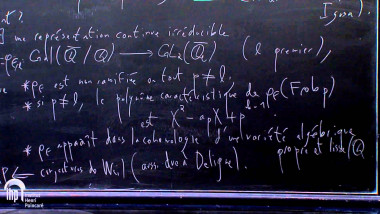 une représentation continue irréductible
ρ_E : Gal(Q̄/Q) → GL₂(Q̄_ℓ) (ℓ premier),
Igusa).
* ρ_E est non ramifiée en tout p≠ℓ.
* si p≠ℓ, le polynôme caractéristique de ρ_E(Frob_p)
est X² - a_p X + p
* ρ_E apparaît dans la cohomologie d'une variété algébrique
propre et lisse/Q
conjectures de Weil (aussi due à Deligne).
Henri
Poincaré